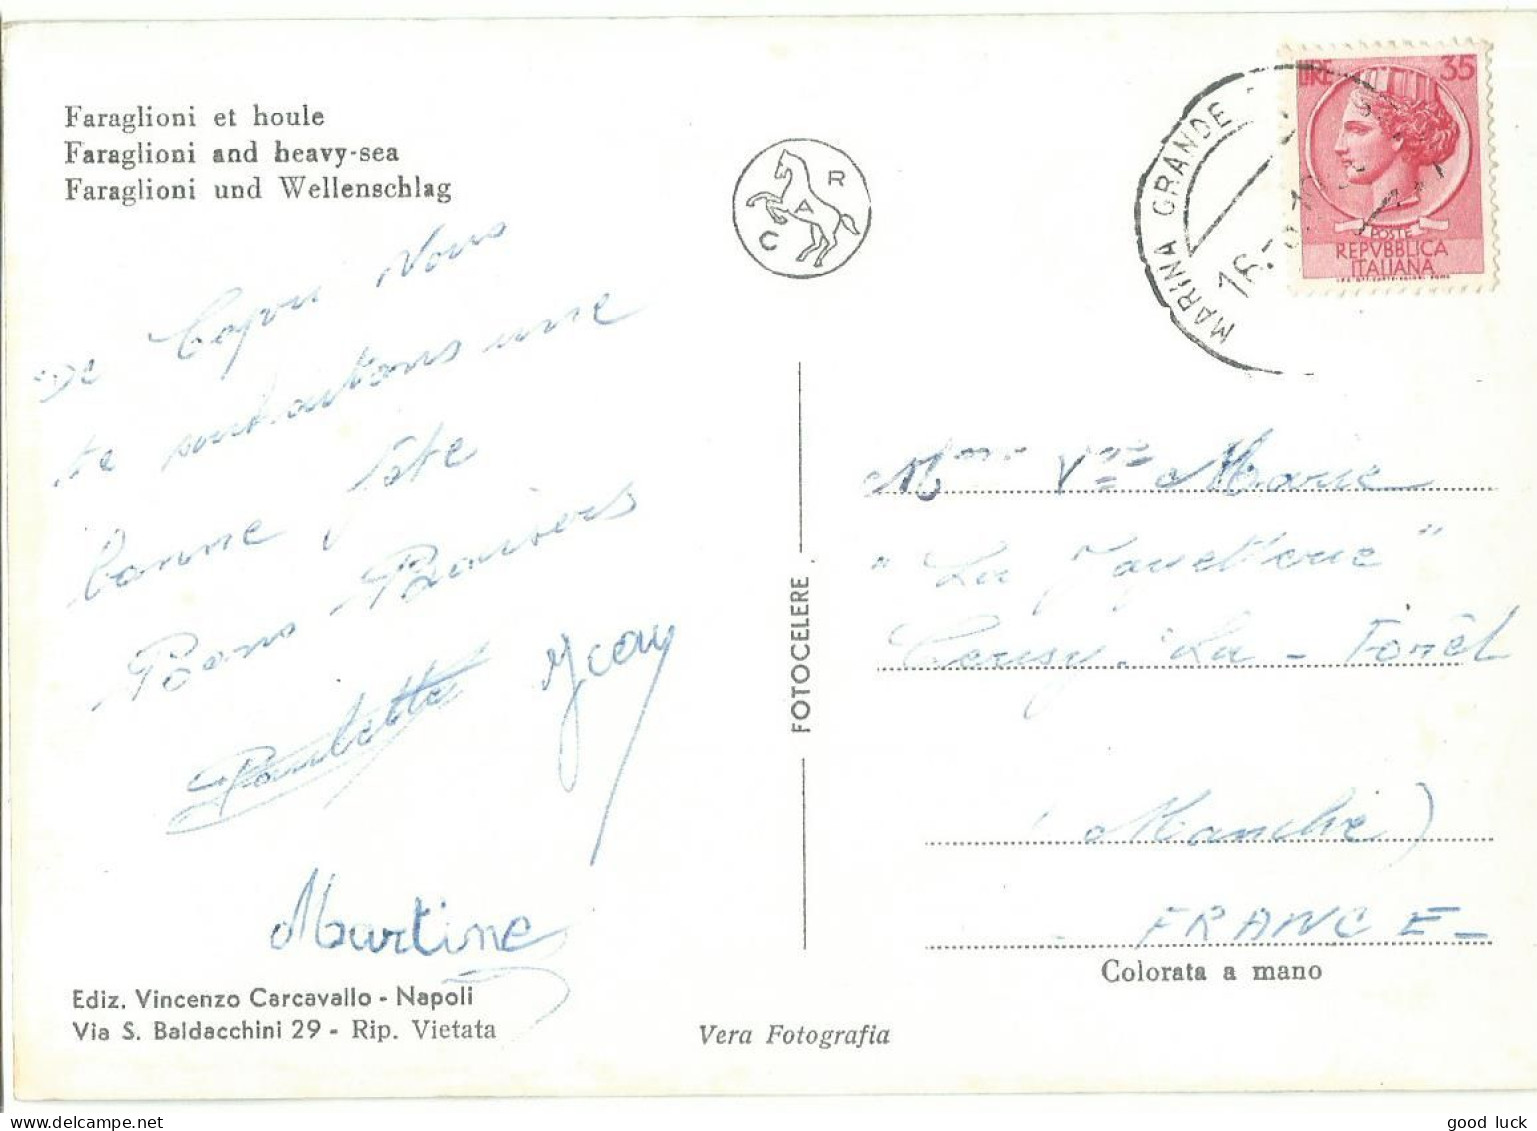 Faraglioni et houle
Faraglioni and heavy-sea
Faraglioni und Wellenschlag
De Capri Nous
te souhaitons une
bonne fête
Bons Baisers
Paulette Jean
Martine
Ediz. Vincenzo Carcavallo - Napoli
Via S. Baldacchini 29 - Rip. Vietata
Vera Fotografia
FOTOCELERE
C A R
MARINA GRANDE
LIRE 35
POSTE
REPVBBLICA
ITALIANA
Mme Vve Marie
"La
Cerisy-La-Forêt
(Manche)
FRANCE
Colorata a mano
www.delcampe.net
good luck